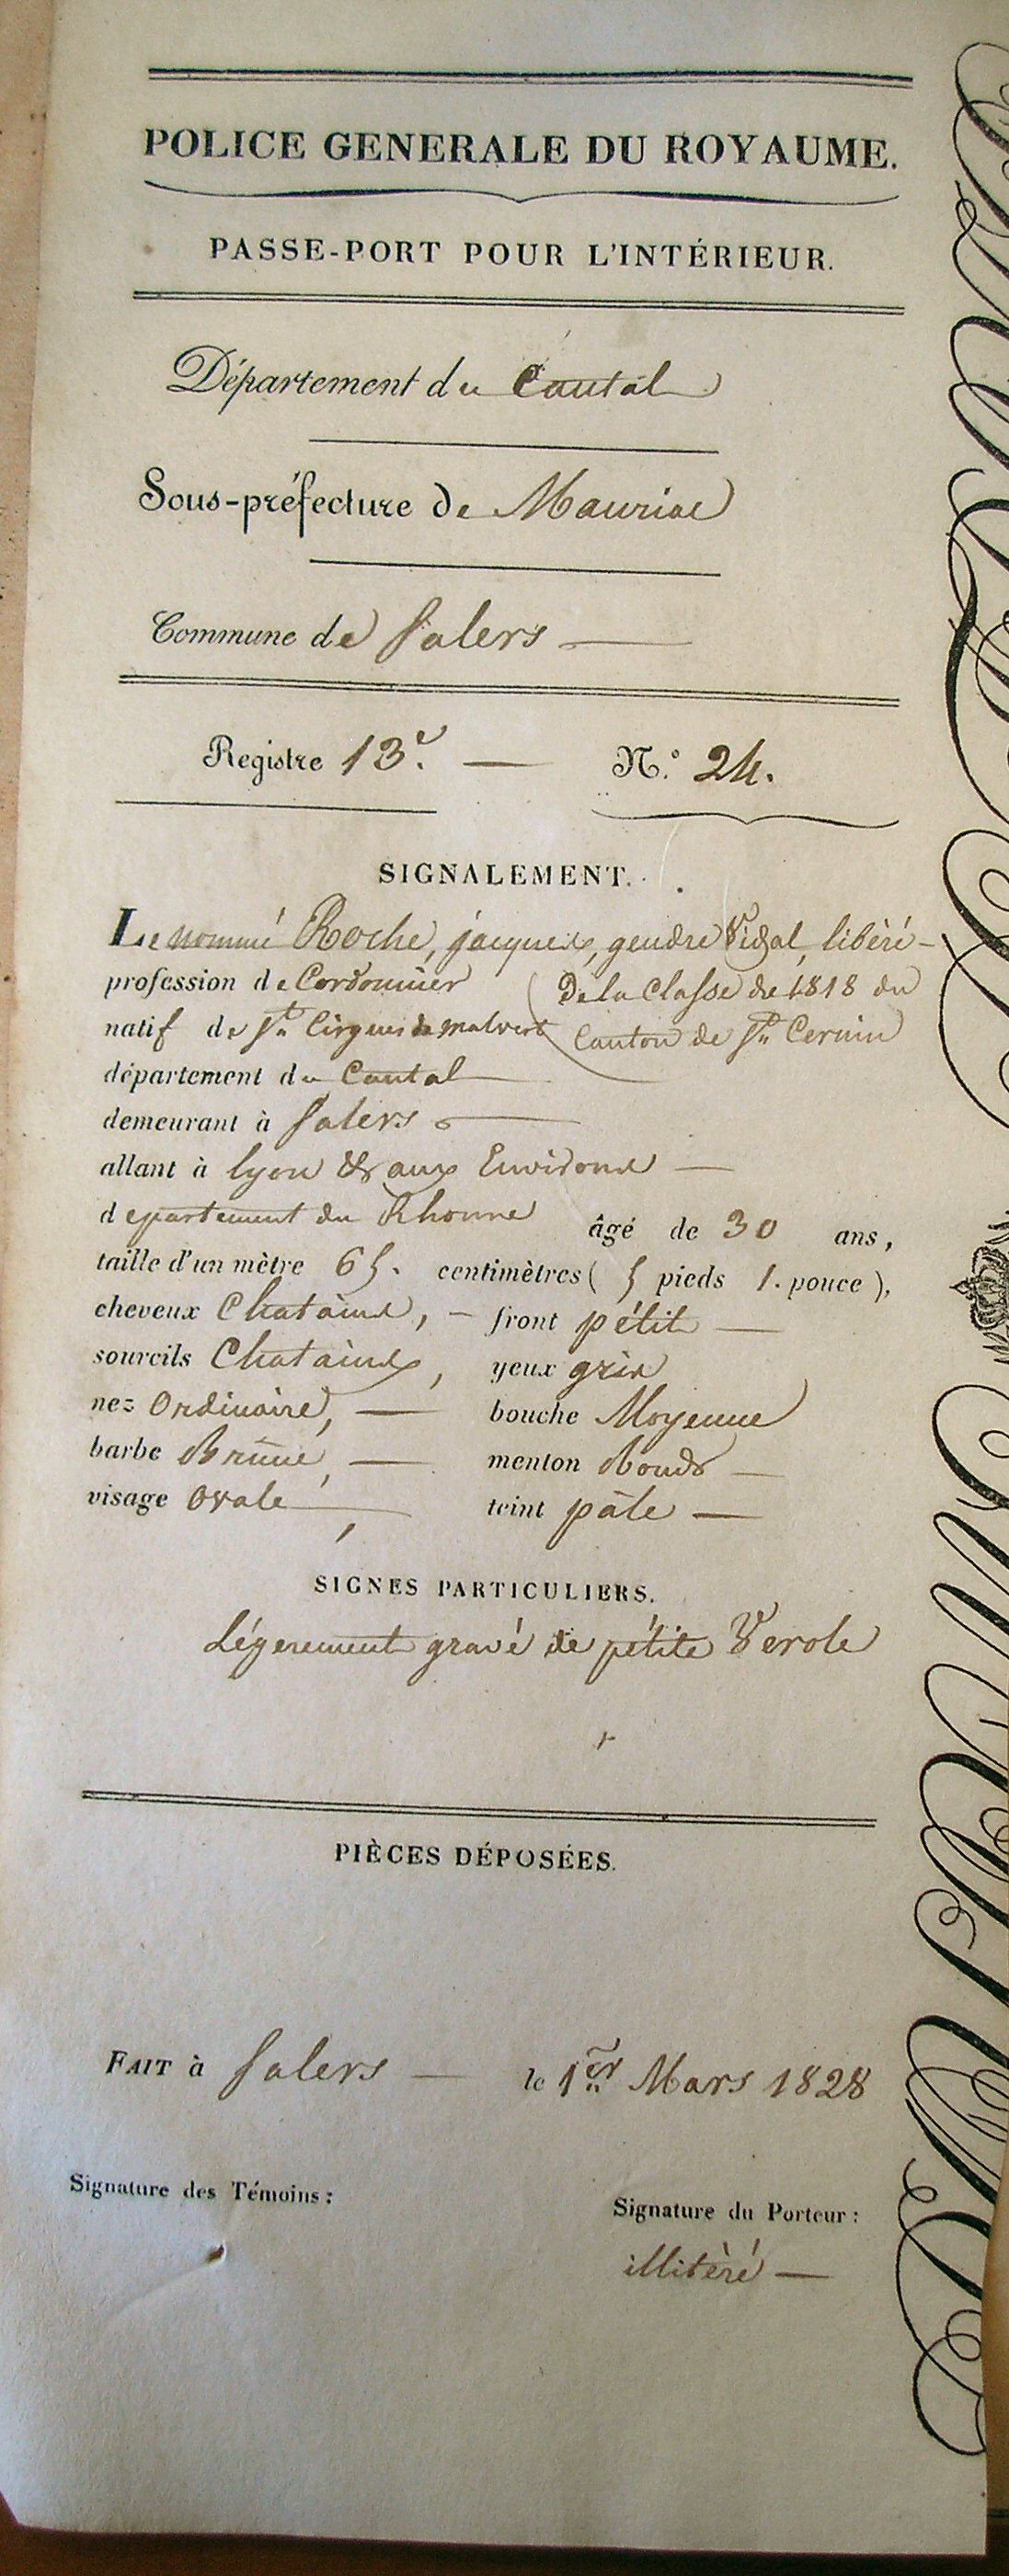 POLICE GENERALE DU ROYAUME.
PASSE-PORT POUR L'INTÉRIEUR.
Département du Cantal
Sous-préfecture de Mauriac
Commune de Salers
Registre 13.e N.° 24.
SIGNALEMENT.
Le nommé Roche, jacques, gendre Vidal, libéré
profession de Cordonnier (De la Classe de 1818 du
natif de St Cirgues de malvert Canton de St Cernin
département du Cantal
demeurant à Salers
allant à lyon & aux Environs
departement du Rhonne âgé de 30 ans,
taille d'un mètre 65. centimètres ( 5 pieds 1. pouce ),
cheveux Chatains, front pétit
sourcils Chatains, yeux gris
nez Ordinaire, bouche Moyenne
barbe Brune, menton Rond
visage Ovale, teint pâle
SIGNES PARTICULIERS.
Légerement gravé de pétite Verole
PIÈCES DÉPOSÉES.
FAIT à Salers le 1er Mars 1828
Signature des Témoins :
Signature du Porteur :
illitéré